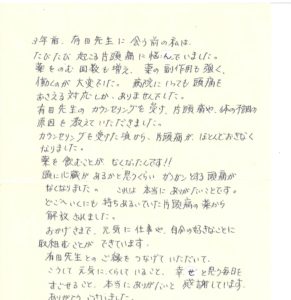 3年前、有田先生に会う前の私は、
たびたび起こる片頭痛に悩んでいました。
薬をのむ回数も増え、薬の副作用も強く、
働くのが大変でした。病院にいっても頭痛を
おさえる対応しか、ありませんでした。
有田先生のカウンセリングを受け、片頭痛や、体の不調の
原因を教えていただきました。
カウンセリングを受けた頃から、片頭痛が、ほとんどおきなく
なりました。
薬を飲むことが、なくなったんです!!
頭に心臓があるかと思うくらいガンガンとする頭痛が
なくなりました。これは本当にありがたいことです。
どこへいくにも持ちあるいていた片頭痛の薬から
解放されました。
おかげさまで、元気に仕事や、自分の好きなことに
取組むことができています。
有田先生とのご縁をつなげていただいて、
こうして元気にくらしていること、幸せと思う毎日を
すごせること、本当にありがたいと感謝しています。
ありがとうございました。